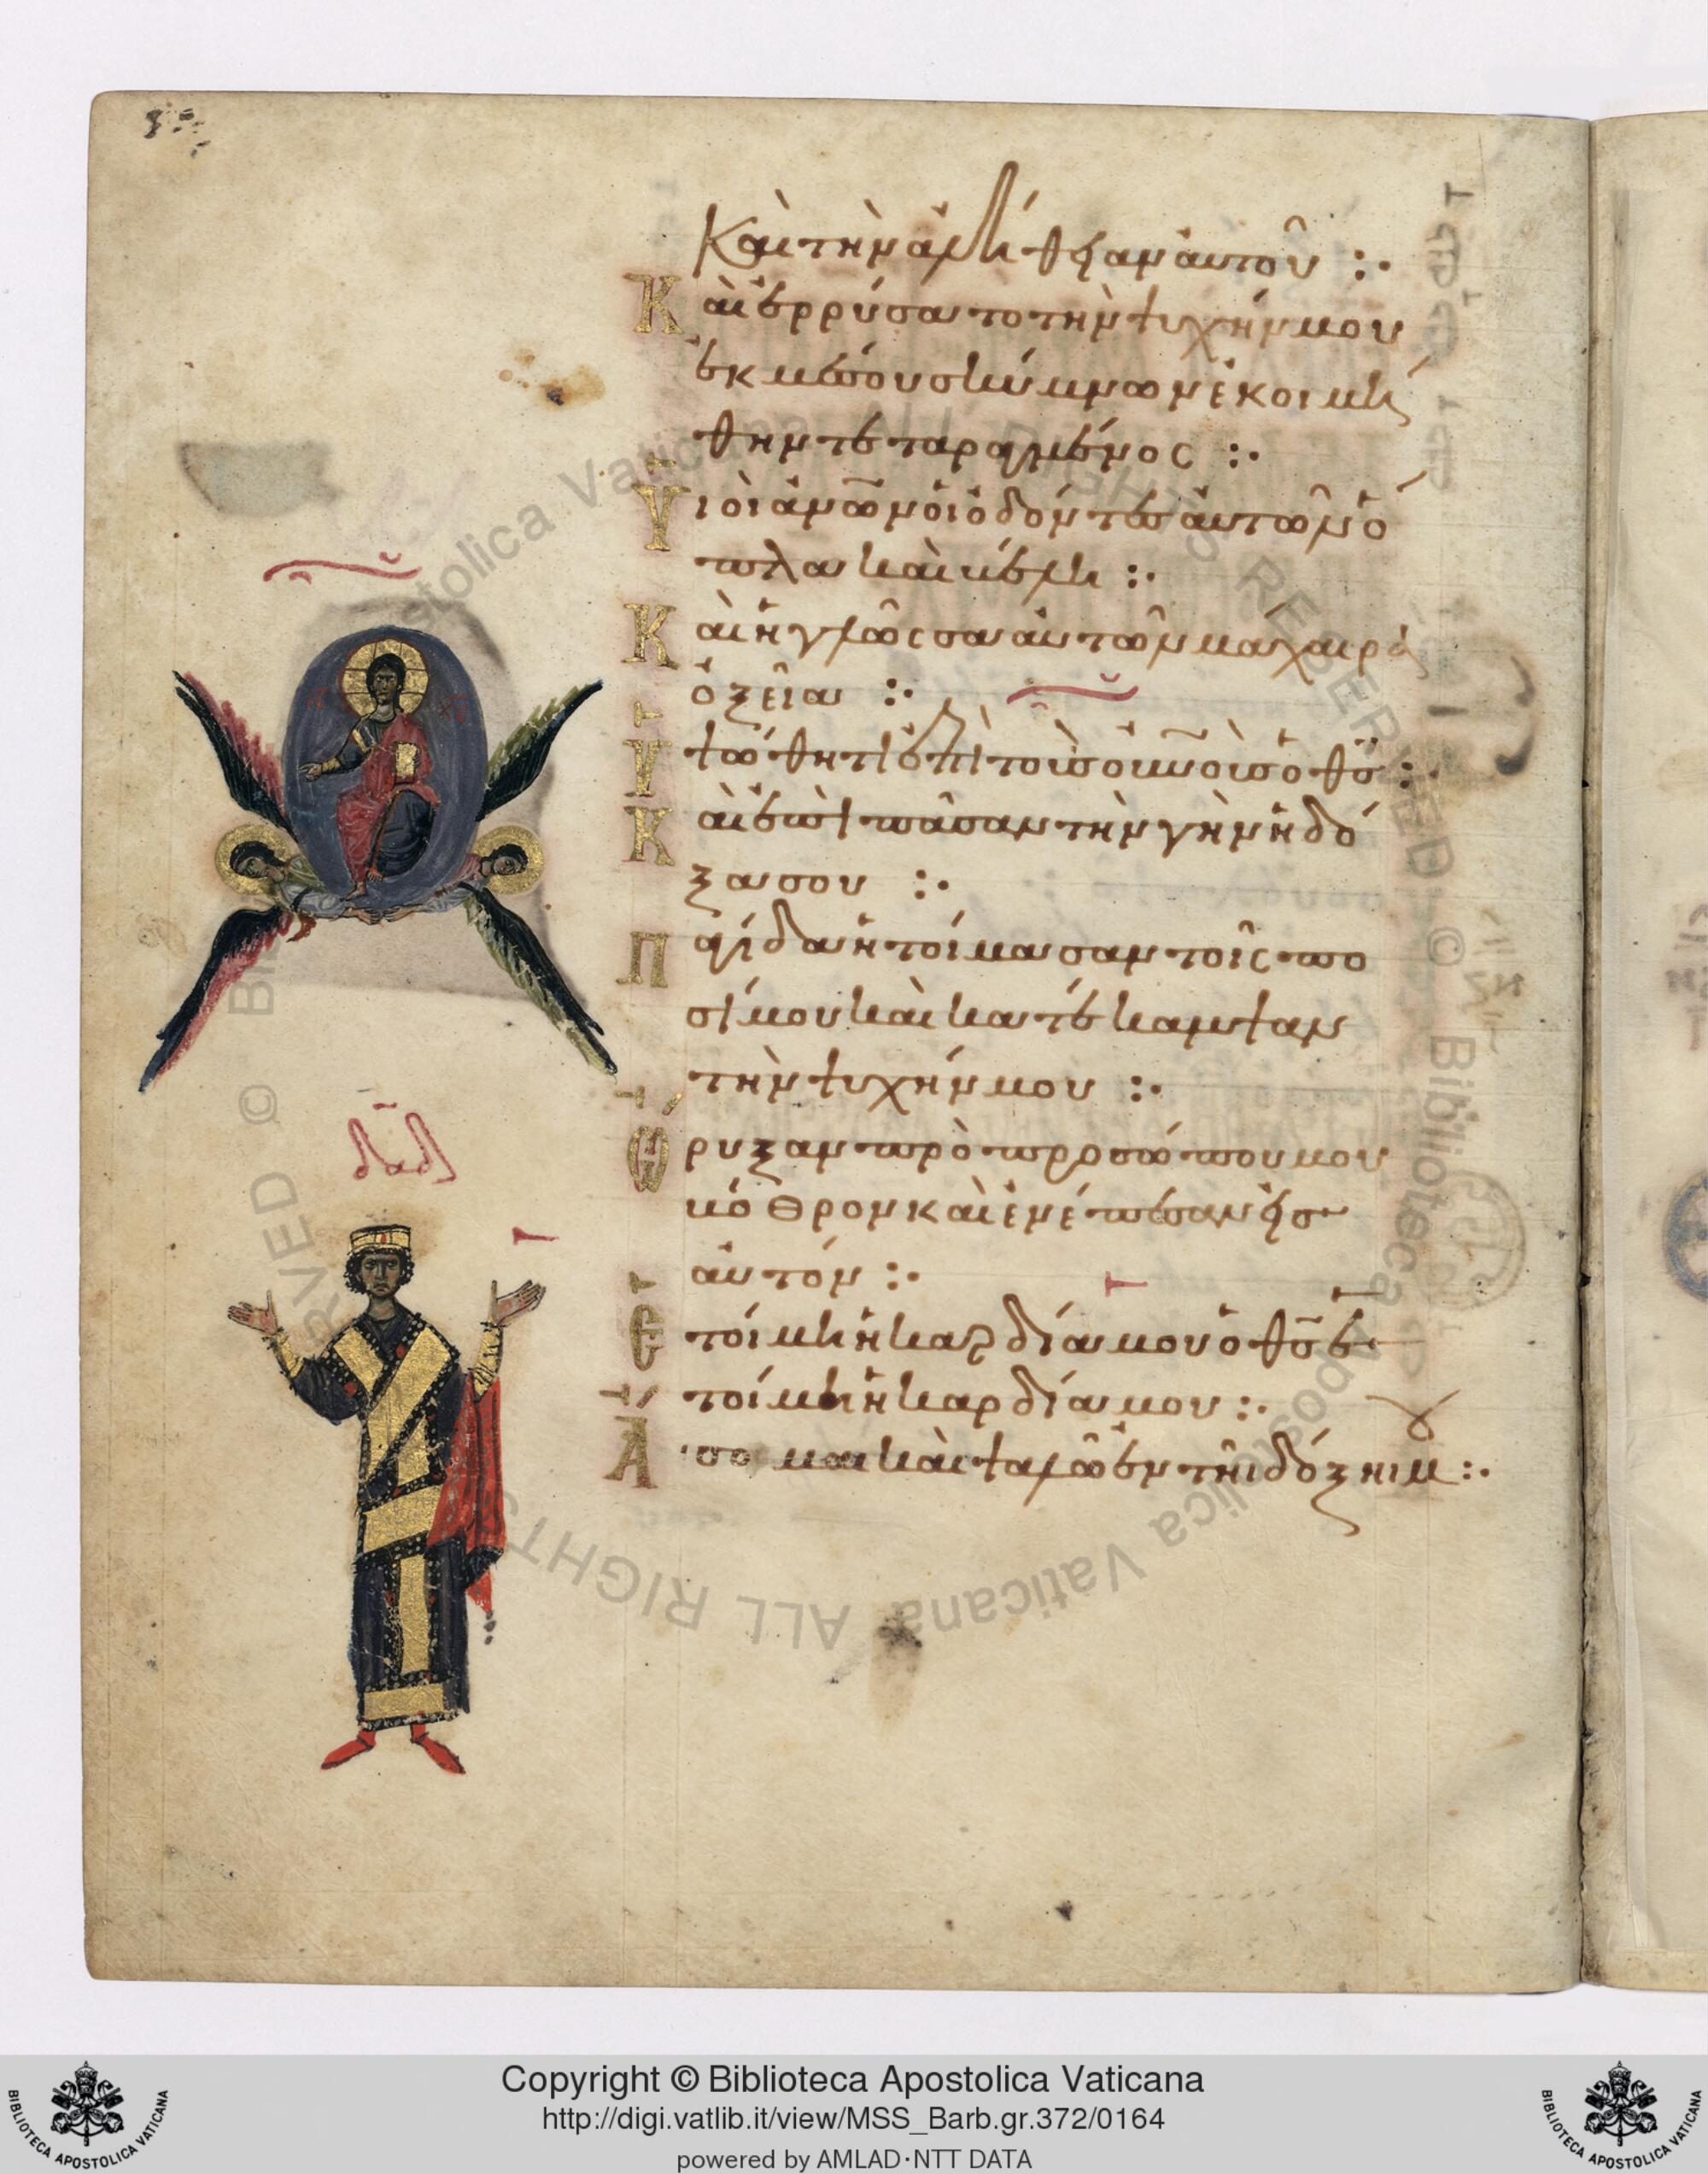 Καὶ τὴν ἀλήθειαν αὐτοῦ :·
Καὶ ἐρρύσατο τὴν ψυχήν μου
ἐκ μέσου σκύμνων ἐκοιμή
θην τεταραγμένος :·
Υἱοὶ ἀνῶν οἱ ὀδόντες αὐτῶν ὅ
πλα καὶ βέλη :·
Καὶ ἡ γλῶσσα αὐτῶν μάχαιρα
ὀξεῖα :·
Ὑψώθητι ἐπὶ τοὺς οὐνοὺς ὁ θς :·
Καὶ ἐπὶ πᾶσαν τὴν γῆν ἡ δό
ξα σου :·
Παγίδα ἡτοίμασαν τοῖς πο
σί μου καὶ κατέκαμψαν
τὴν ψυχήν μου :·
Ὤρυξαν πρὸ προσώπου μου
βόθρον καὶ ἐνέπεσαν εἰς
αὐτόν :·
Ἑτοίμη ἡ καρδία μου ὁ θς ἑ
τοίμη ἡ καρδία μου :·
Ἄισομαι καὶ ψαλῶ ἐν τῇ δόξῃ μ :·
ΙΣ ΧΣ
δαδ
Copyright © Biblioteca Apostolica Vaticana
http://digi.vatlib.it/view/MSS_Barb.gr.372/0164
powered by AMLAD·NTT DATA
BIBLIOTECA APOSTOLICA VATICANA
BIBLIOTECA APOSTOLICA VATICANA